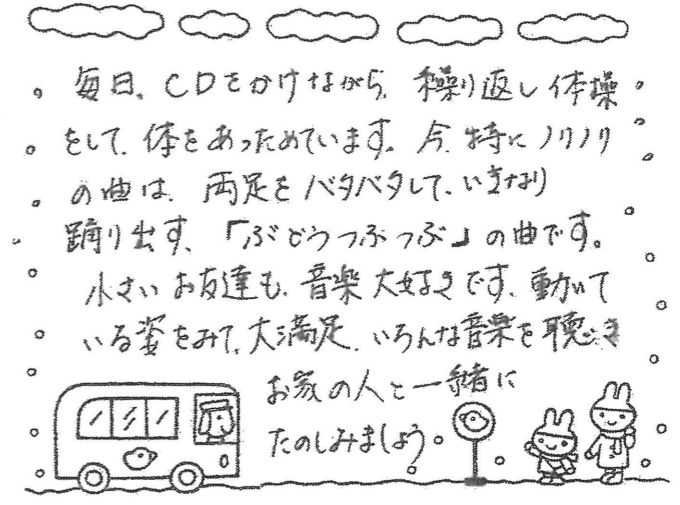 毎日、CDをかけながら、繰り返し体操
をして、体をあっためています。今、特にノリノリ
の曲は、両足をバタバタして、いきなり
踊り出す、「ぶどうつぶつぶ」の曲です。
小さいお友達も、音楽大好きです、動いて
いる姿をみて、大満足、いろんな音楽を聴き
お家の人と一緒に
たのしみましょう。